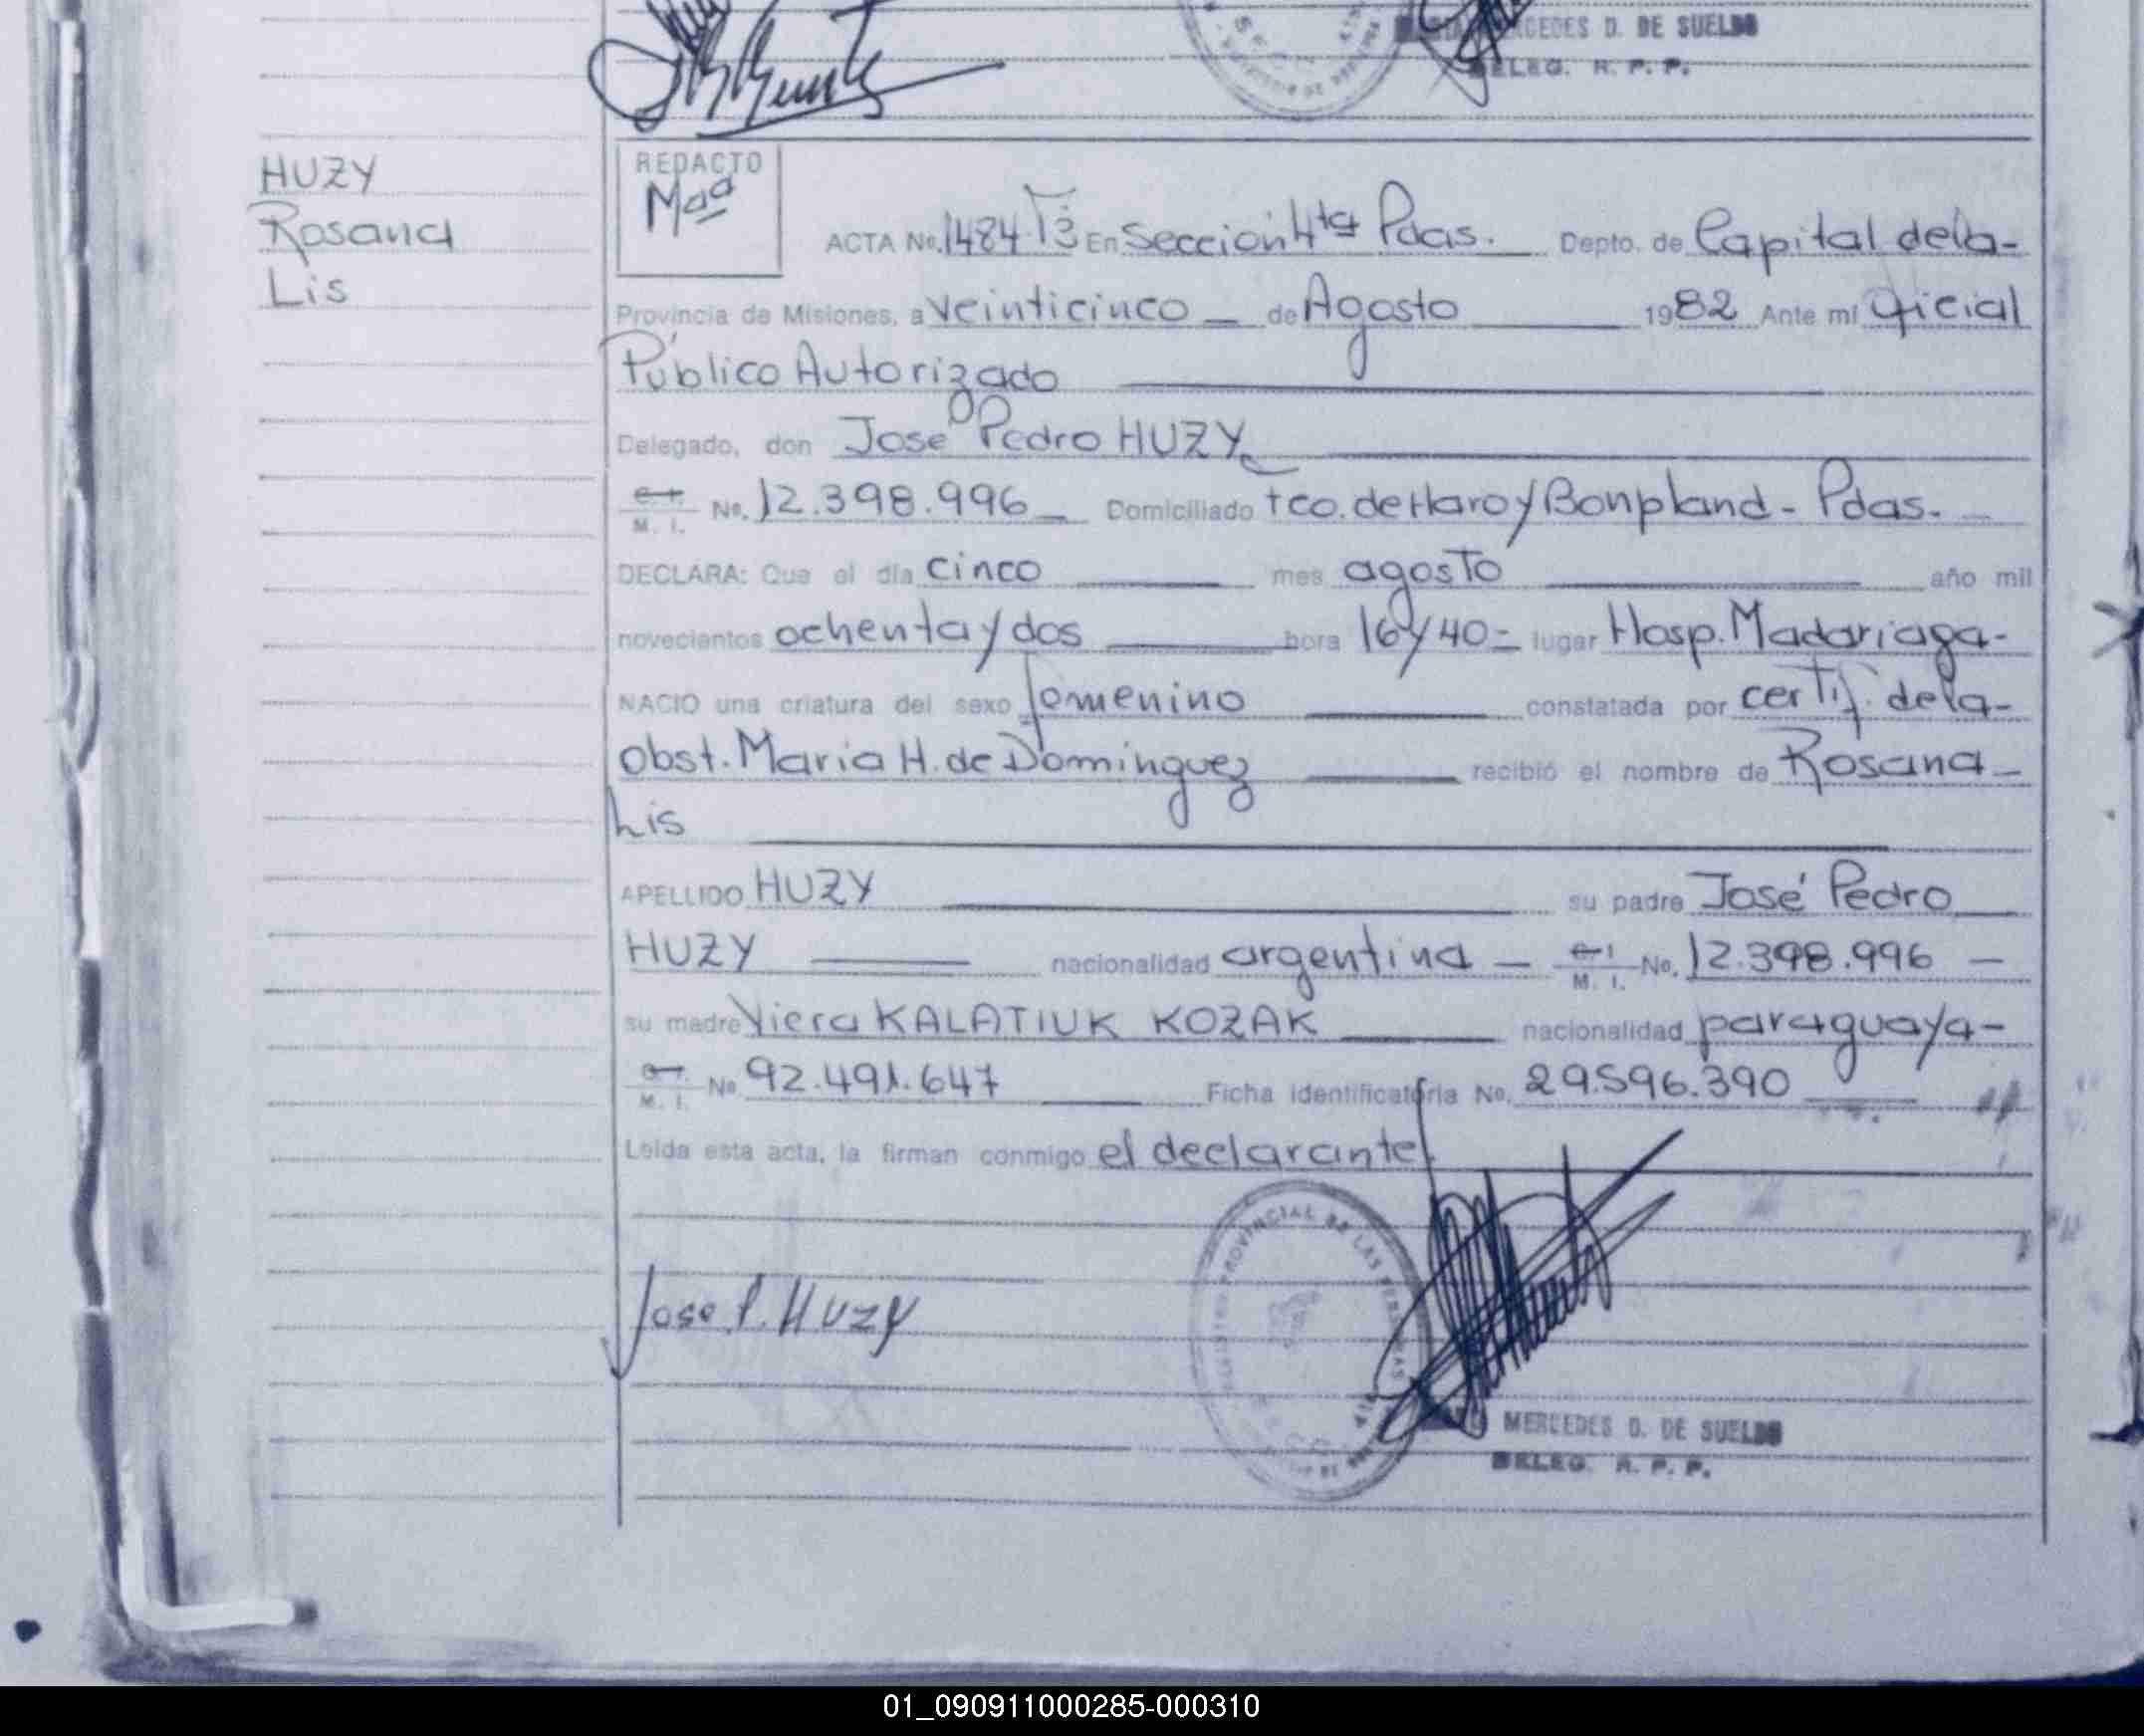 MERCEDES D. DE SUELDO
DELEG. R. P. P.
HUZY
Rosana
Lis
REDACTO
Mªª
ACTA No. 1484 Tº3 En Sección 4ta Pdas. Depto. de Capital de la-
Provincia de Misiones, a veinticinco de Agosto 1982 Ante mí Oficial
Público Autorizado
Delegado, don José Pedro HUZY
M. I. No. 12.398.996 Domiciliado Fco. de Haro y Bonpland - Pdas.
DECLARA: Que el día cinco mes agosto año mil
novecientos ochenta y dos hora 16 y 40 lugar Hosp. Madariaga-
NACIO una criatura del sexo femenino constatada por certif. de la-
Obst. Maria H. de Dominguez recibió el nombre de Rosana
Lis
APELLIDO HUZY su padre José Pedro
HUZY nacionalidad argentina M. I. No. 12.398.996
su madre Viera KALATIUK KOZAK nacionalidad paraguaya-
M. I. No 92.491.647 Ficha identificatoria No. 29.596.390
Leída esta acta, la firman conmigo el declarante
REGISTRO PROVINCIAL DE LAS PERSONAS
Jose P. Huzy
MERCEDES D. DE SUELDO
DELEG. R. P. P.
01_090911000285-000310